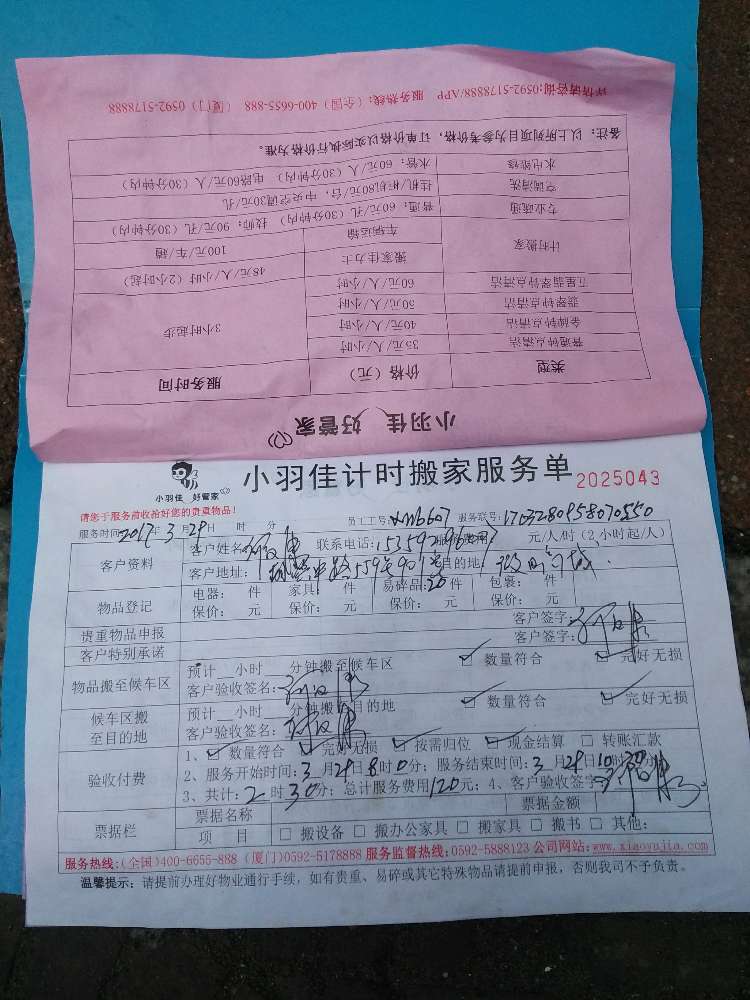 小羽佳 好管家
类型 价格(元) 服务时间
普通钟点清洁 35元/人/小时 3小时起步
金牌钟点清洁 40元/人/小时
翡翠钟点清洁 50元/人/小时
五星翡翠钟点清洁 60元/人/小时
计时搬家 搬家佳力士 48元/人/小时(2小时起)
车辆运输 100元/车/趟
专业疏通 普通:60元/孔(30分钟内) 技师:90元/孔(30分钟内)
空调清洗 挂机/柜机80元/台,中央空调30元/孔
水电维修 水管:60元/人(30分钟内) 电路60元/人(30分钟内)
备注:以上所列项目为参考价格,订单价格以实际执行价格为准。
详情请咨询:0592-5178888/APP 服务热线:(全国)400-6655-888 (厦门)0592-5178888
小羽佳 好管家
小羽佳计时搬家服务单 2025043
请您于服务前收拾好您的贵重物品!
服务时间:2017年3月29日 时 分 员工工号: 服务联号:1703280958070550
客户资料 客户姓名: 联系电话: 服务费用 元/人/时(2小时起/人)
客户地址: 目的地:
物品登记 电器: 件 家具: 件 易碎品:20件 包裹: 件
保价: 元 保价: 元 保价: 元 保价: 元
贵重物品申报 客户签字:
客户特别承诺 客户签字:
物品搬至候车区 预计__小时__分钟搬至候车区 数量符合 完好无损
客户验收签名:
候车区搬至目的地 预计__小时__分钟搬至目的地 数量符合 完好无损
客户验收签名:
验收付费 1、数量符合 完好无损 按需归位 现金结算 转账汇款
2、服务开始时间:3月29日8时0分;服务结束时间:3月29日10时30分
3、共计:2时30分;总计服务费用120元;4、客户验收签字:
票据栏 票据名称 票据金额
项目 搬设备 搬办公家具 搬家具 搬书 其他:
服务热线:(全国)400-6655-888 (厦门)0592-5178888 服务监督热线:0592-5888123 公司网站:www.xiaoyujia.com
温馨提示:请提前办理好物业通行手续,如有贵重、易碎或其它特殊物品请提前申报,否则我司不予负责。